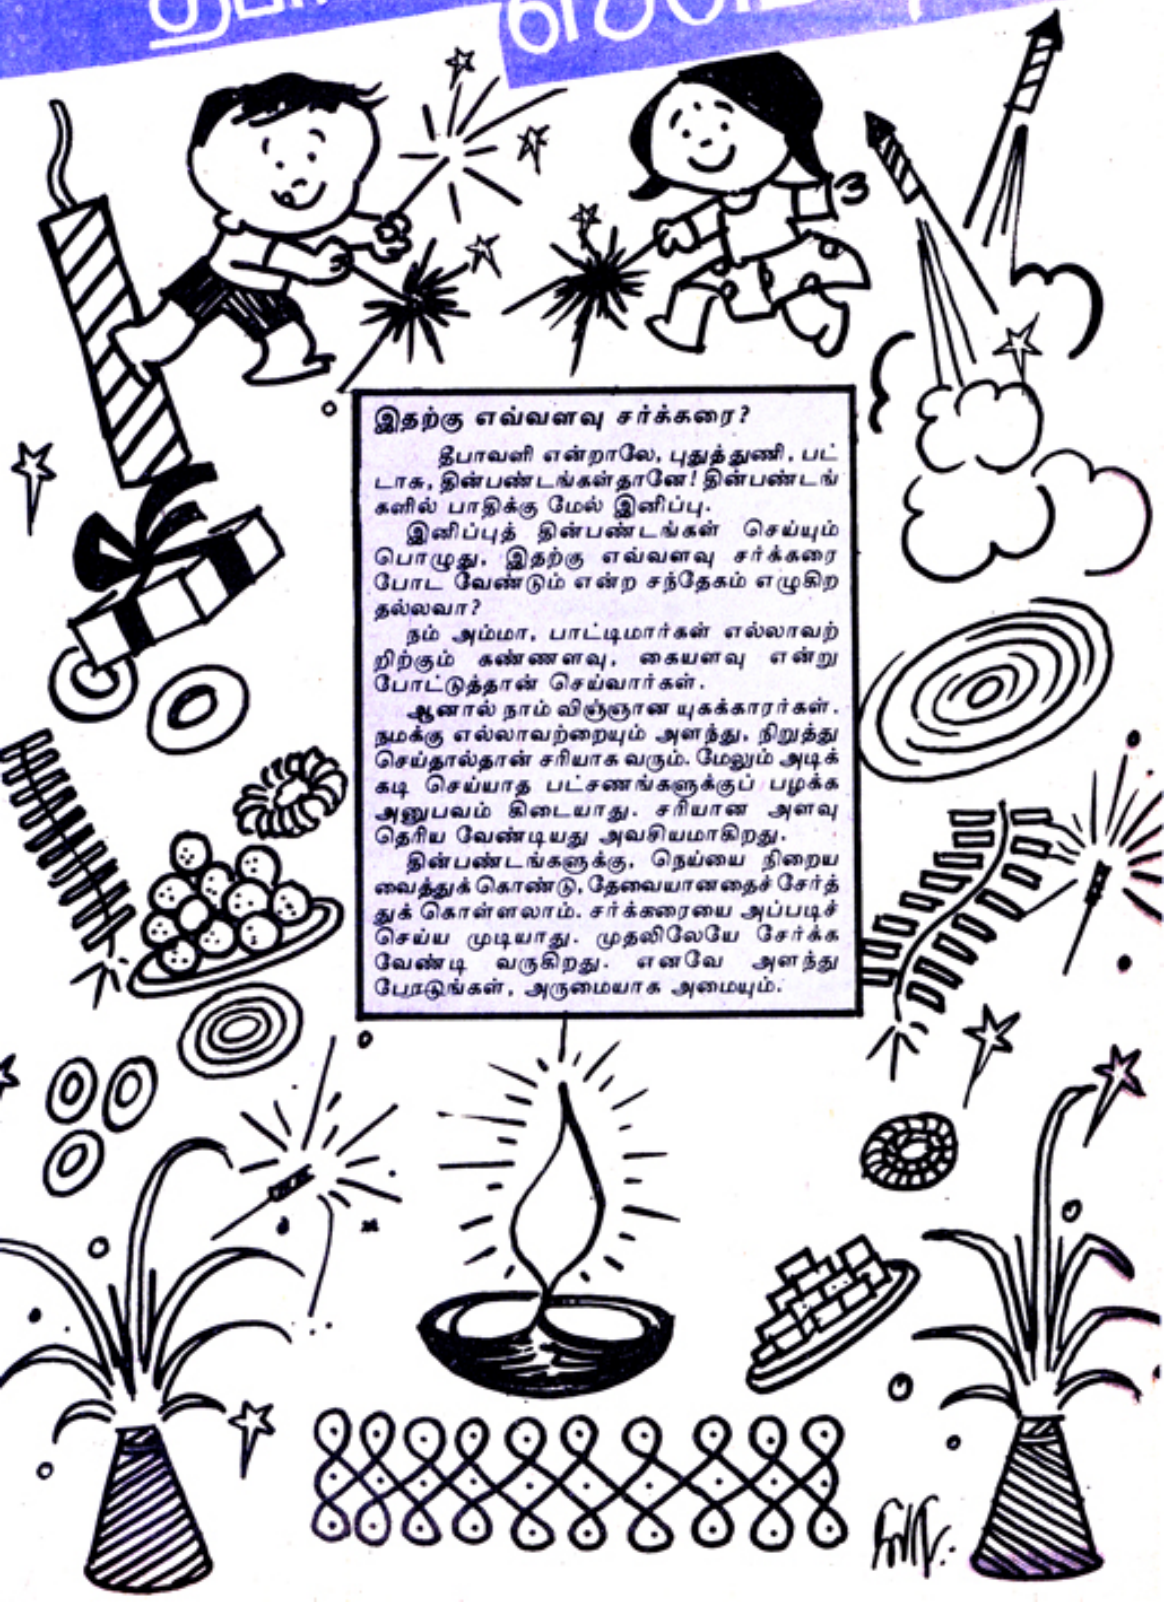 இதற்கு எவ்வளவு சர்க்கரை?
தீபாவளி என்றாலே, புதுத்துணி, பட்
டாசு, தின்பண்டங்கள்தானே! தின்பண்டங்
களில் பாதிக்கு மேல் இனிப்பு.
இனிப்புத் தின்பண்டங்கள் செய்யும்
பொழுது, இதற்கு எவ்வளவு சர்க்கரை
போட வேண்டும் என்ற சந்தேகம் எழுகிற
தல்லவா?
நம் அம்மா, பாட்டிமார்கள் எல்லாவற்
றிற்கும் கண்ணளவு, கையளவு என்று
போட்டுத்தான் செய்வார்கள்.
ஆனால் நாம் விஞ்ஞான யுகக்காரர்கள்.
நமக்கு எல்லாவற்றையும் அளந்து, நிறுத்து
செய்தால்தான் சரியாக வரும். மேலும் அடிக்
கடி செய்யாத பட்சணங்களுக்குப் பழக்க
அனுபவம் கிடையாது. சரியான அளவு
தெரிய வேண்டியது அவசியமாகிறது.
தின்பண்டங்களுக்கு, நெய்யை நிறைய
வைத்துக் கொண்டு, தேவையானதைச் சேர்த்
துக் கொள்ளலாம். சர்க்கரையை அப்படிச்
செய்ய முடியாது. முதலிலேயே சேர்க்க
வேண்டி வருகிறது. எனவே அளந்து
போடுங்கள், அருமையாக அமையும்.